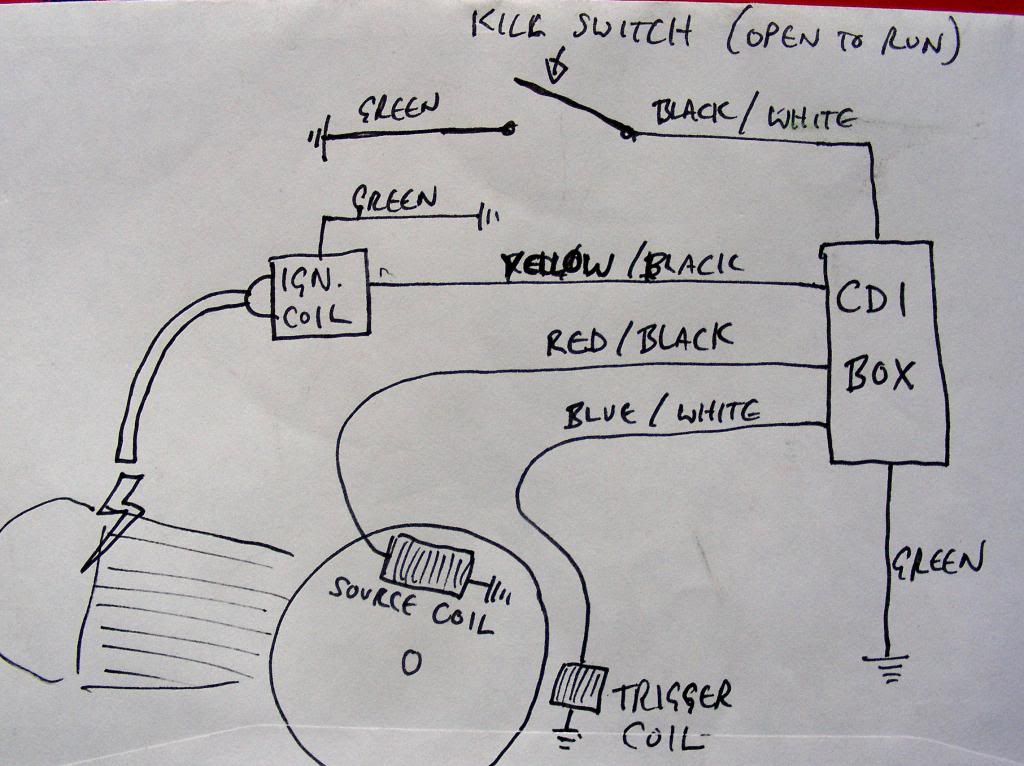 KILL SWITCH (OPEN TO RUN)
GREEN
BLACK/WHITE
GREEN
IGN.
COIL
YELLOW/BLACK
CDI
BOX
RED/BLACK
BLUE/WHITE
GREEN
SOURCE COIL
TRIGGER
COIL